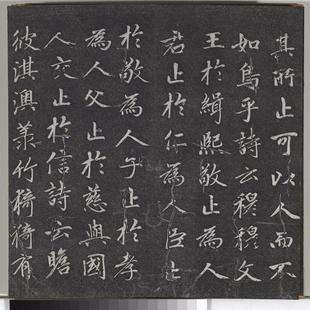 其所止可以人而不
如鳥乎詩云穆穆文
王於緝熙敬止為人
君止於仁為人臣止
於敬為人子止於孝
為人父止於慈與國
人交止於信詩云瞻
彼淇澳菉竹猗猗有